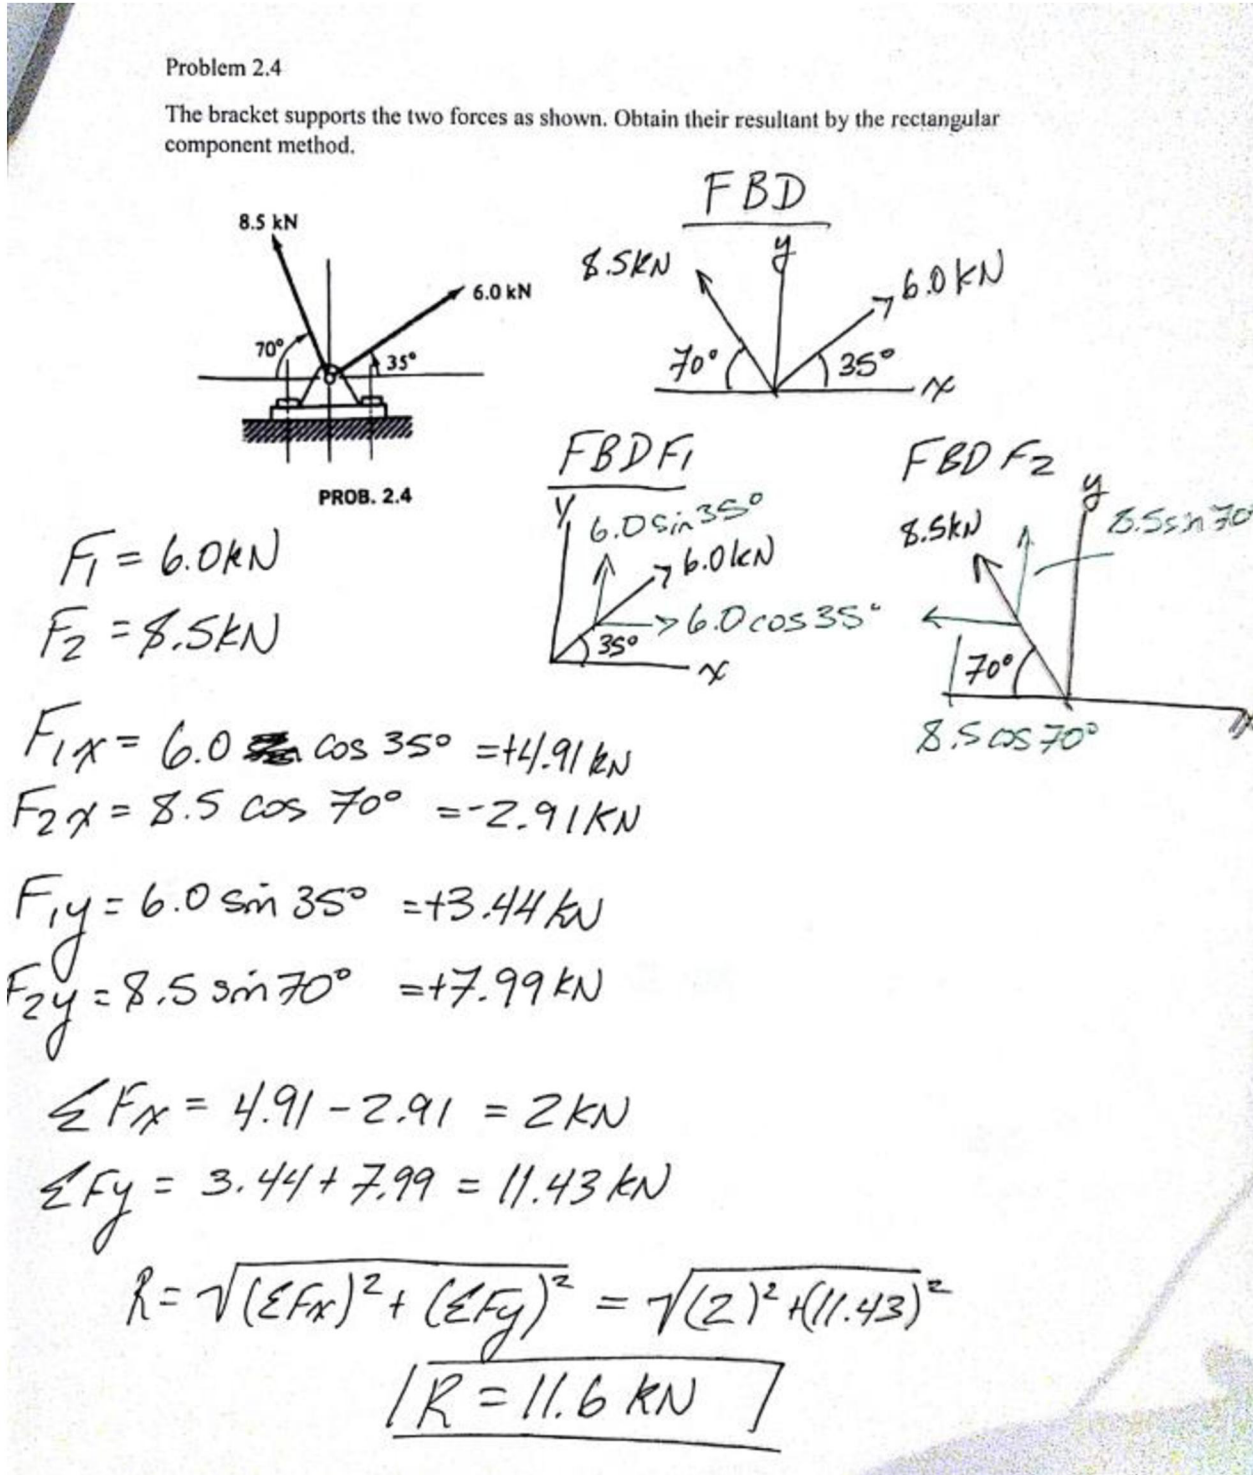 Problem 2.4
The bracket supports the two forces as shown. Obtain their resultant by the rectangular
component method.
8.5 kN
6.0 kN
70°
35°
PROB. 2.4
FBD
y
8.5KN
6.0 KN
70°
35°
x
FBD F1
y
6.0 sin 35°
6.0 kN
6.0 cos 35°
35°
x
FBD F2
y
8.5kN
8.5 sin 70
70°
8.5 cos 70°
x
F1 = 6.0KN
F2 = 8.5KN
F1x = 6.0 cos 35° = +4.91 kN
F2x = 8.5 cos 70° = -2.91 KN
F1y = 6.0 sin 35° = +3.44 kN
F2y = 8.5 sin 70° = +7.99 KN
ΣFx = 4.91 - 2.91 = 2 KN
ΣFy = 3.44 + 7.99 = 11.43 kN
R = √(ΣFx)² + (ΣFy)² = √(2)² + (11.43)²
R = 11.6 KN